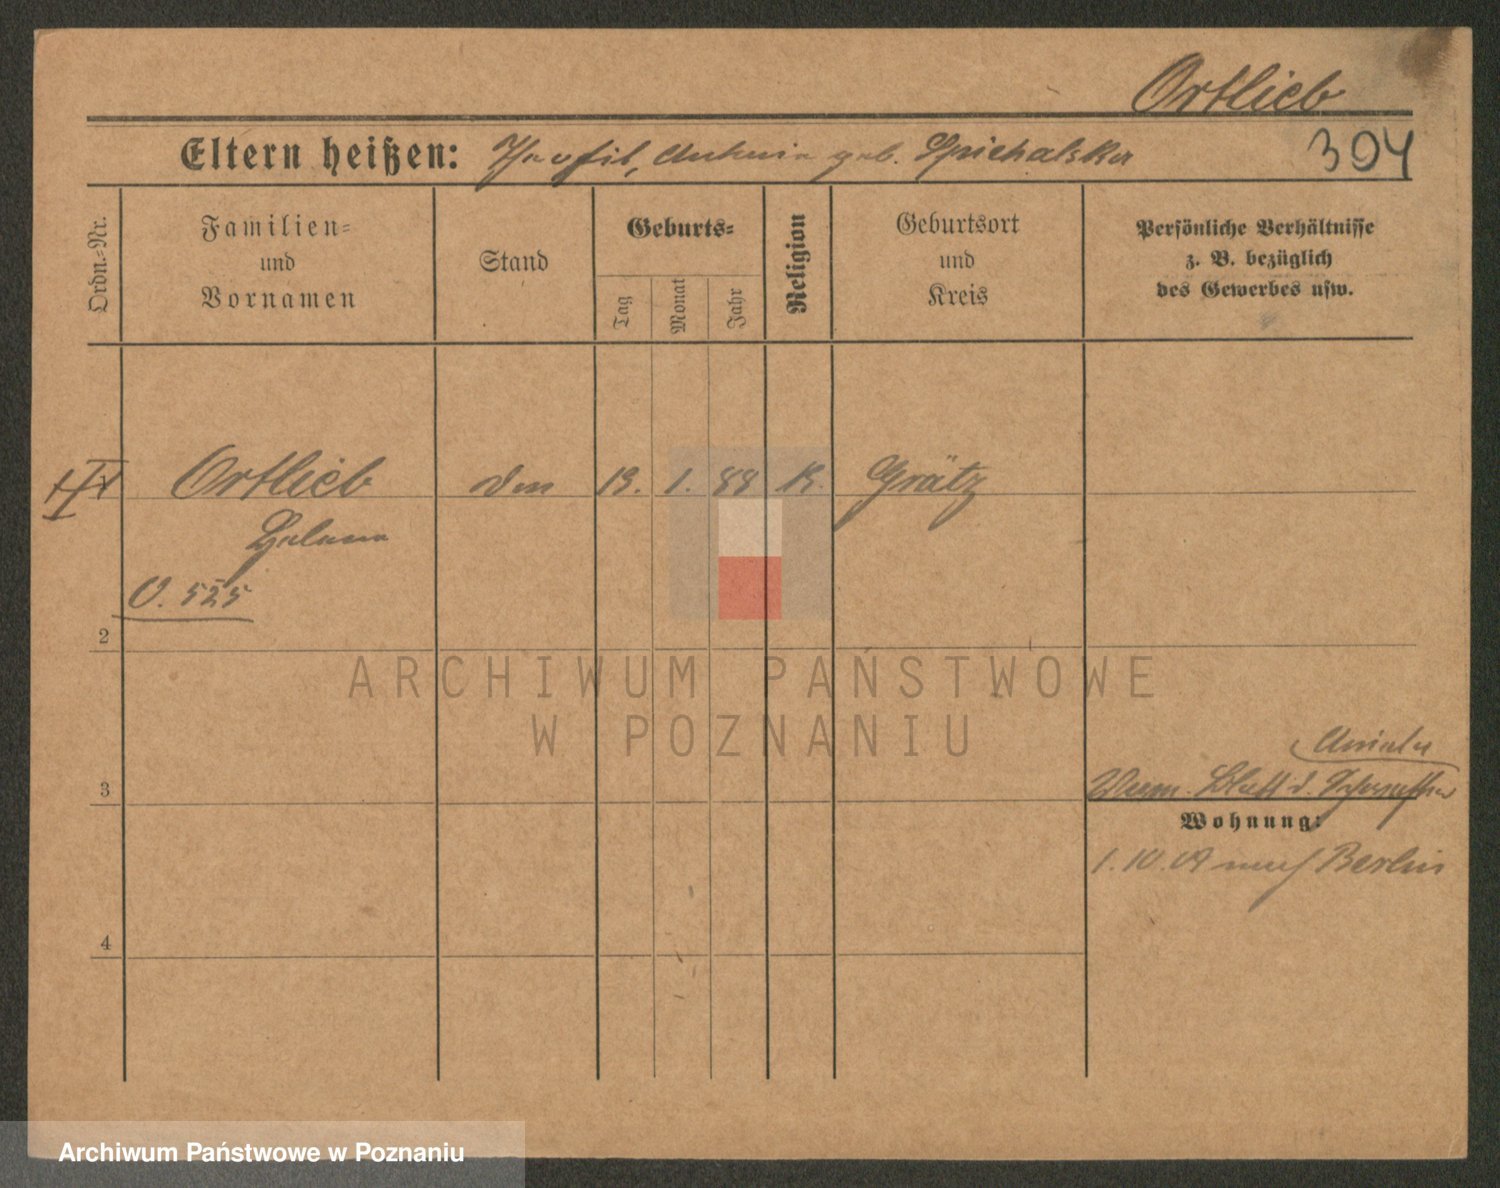 Ortlieb
Eltern heißen: Theofil, Antonie geb. Spichalska
394
Ordn.-Nr.
Familien-
und
Vornamen
Stand
Geburts-
Tag
Monat
Jahr
Religion
Geburtsort
und
Kreis
Persönliche Verhältnisse
z. B. bezüglich
des Gewerbes usw.
Ortlieb
19. 1. 88 K. Grätz
Helene
V. 525
2
ARCHIWUM PAŃSTWOWE
W POZNANIU
3
Blatt d.
Wohnung:
1. 10. 09 nach Berlin
4
Archiwum Państwowe w Poznaniu